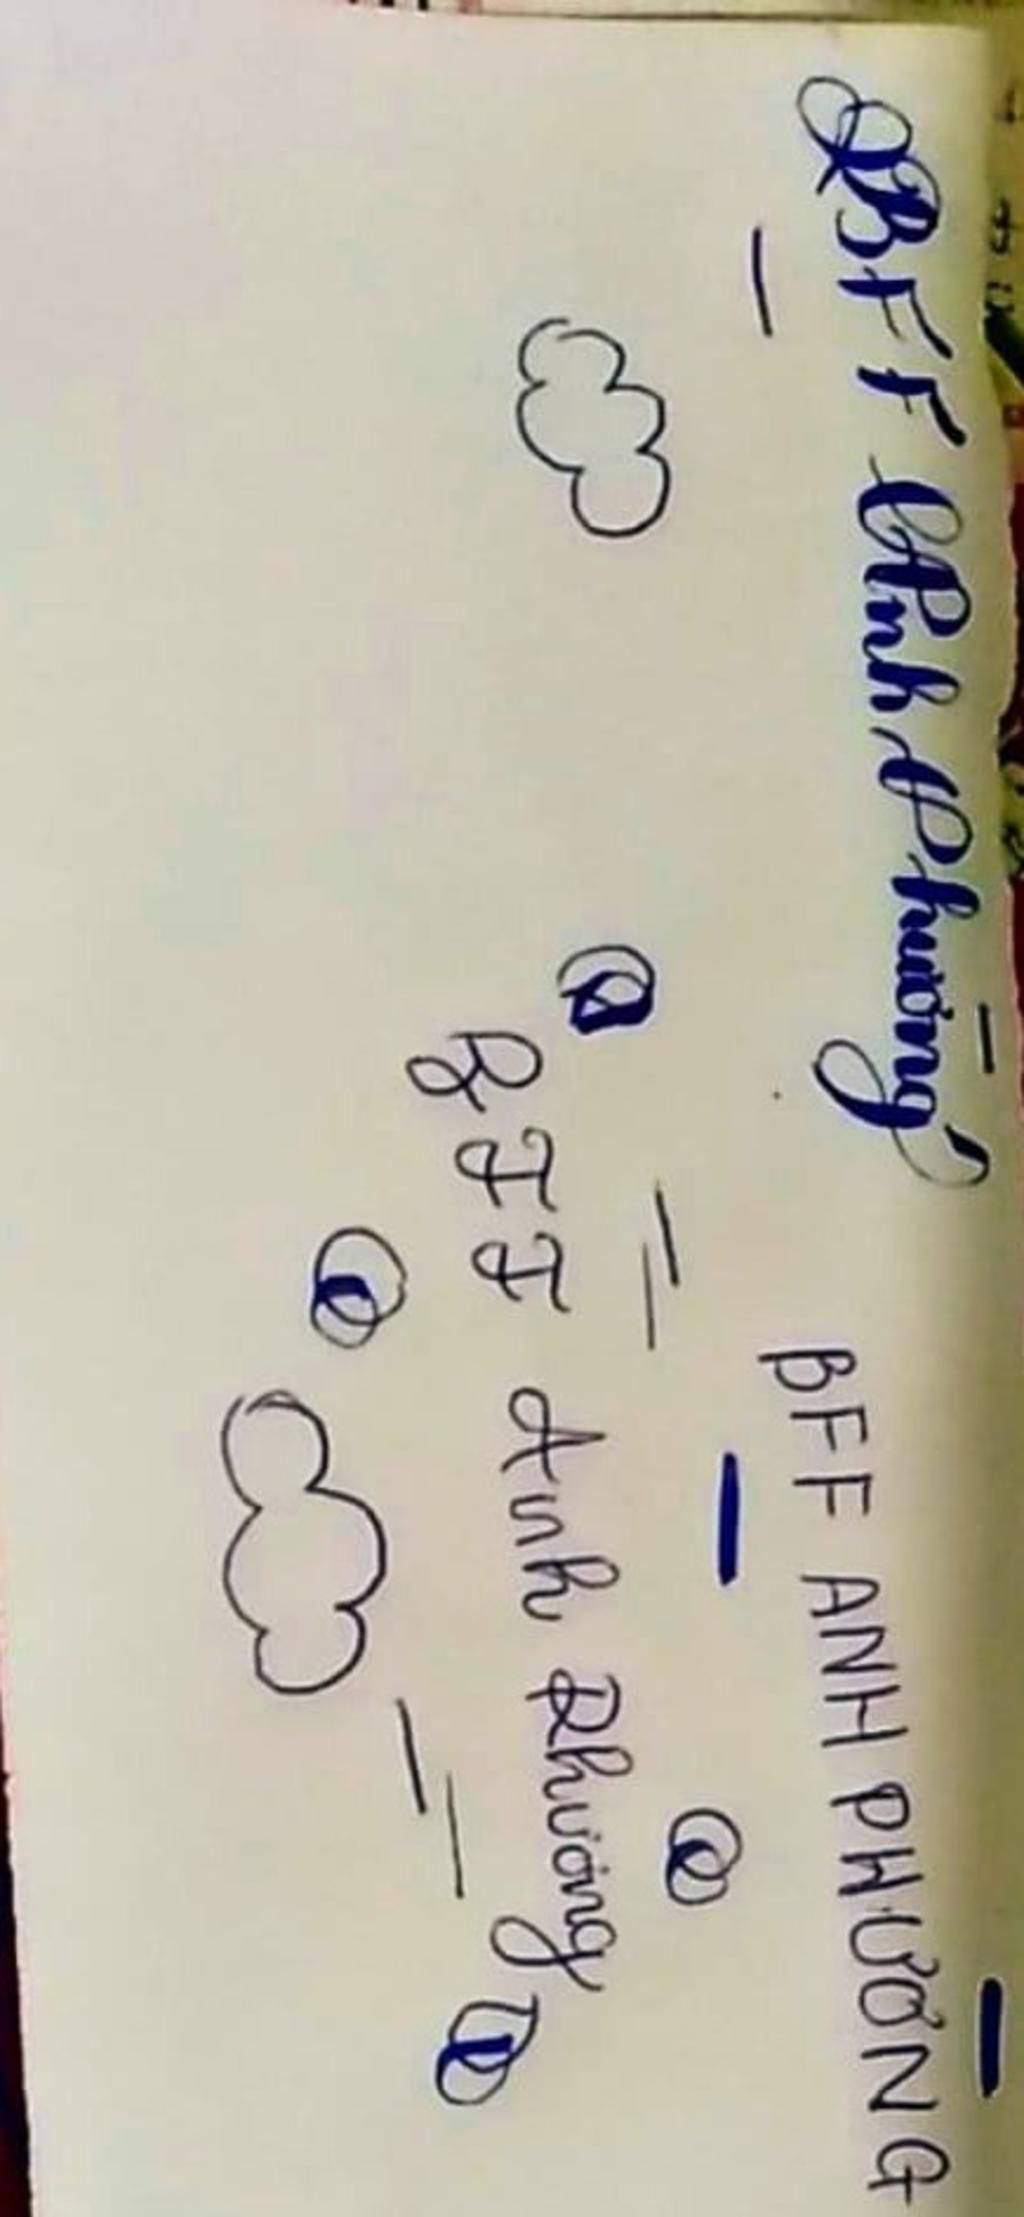 BFF Anh Phương
BFF ANH PHƯƠNG
BFF Anh Phương